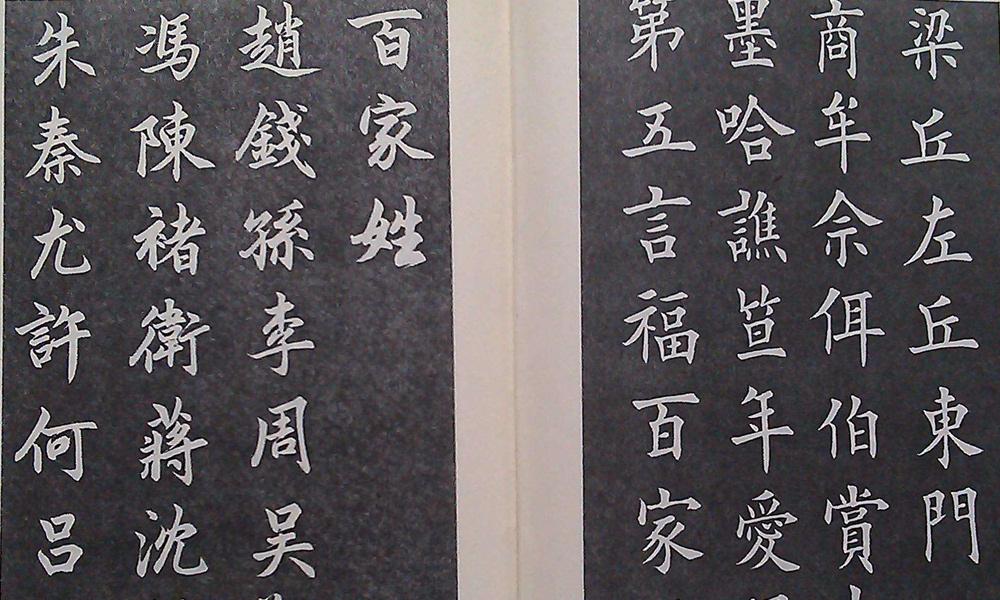 梁丘左丘東門
商牟佘佴伯賞
墨哈譙笪年愛
第五言福百家
百家姓
趙錢孫李周吴
馮陳褚衛蔣沈
朱秦尤許何吕